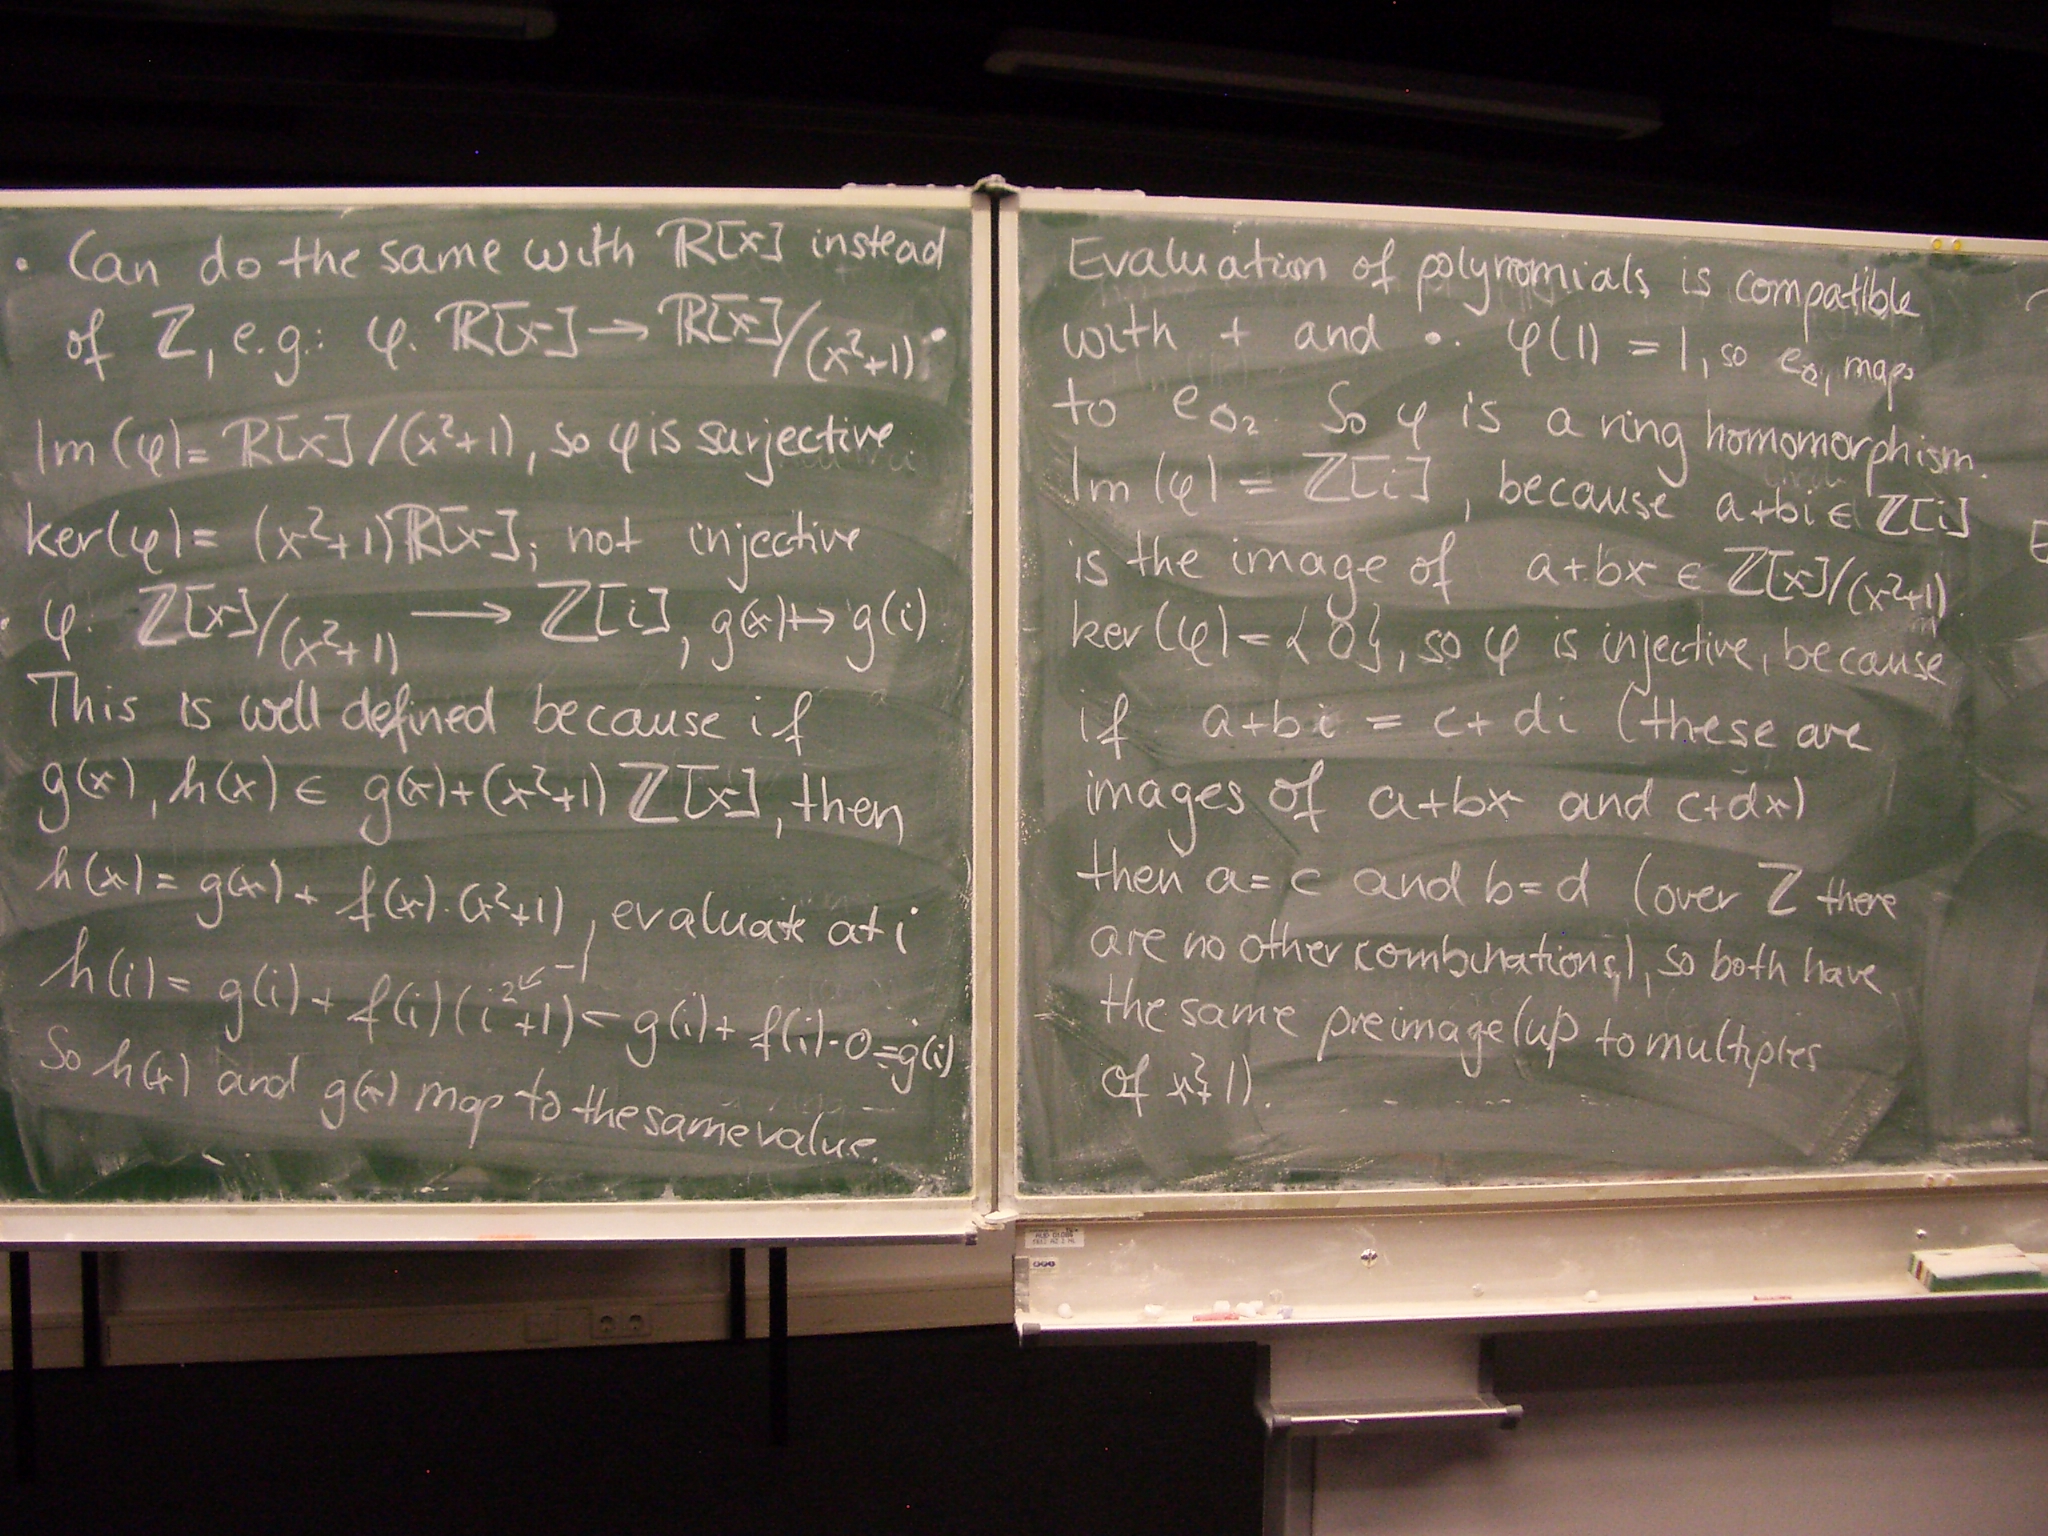 · Can do the same with ℝ[x] instead
of ℤ, e.g.: φ: ℝ[x] → ℝ[x]/(x²+1).
Im(φ) = ℝ[x]/(x²+1), so φ is surjective
ker(φ) = (x²+1)ℝ[x]; not injective
· φ: ℤ[x]/(x²+1) ⟶ ℤ[i], g(x) ↦ g(i)
This is well defined because if
g(x), h(x) ∈ g(x)+(x²+1)ℤ[x], then
h(x) = g(x) + f(x)·(x²+1), evaluate at i
h(i) = g(i) + f(i)(i²+1) = g(i) + f(i)·0 = g(i)
↙ -1
So h(x) and g(x) map to the same value.
Evaluation of polynomials is compatible
with + and ·. φ(1) = 1, so e_{Q₁} maps
to e_{Q₂}. So φ is a ring homomorphism.
Im(φ) = ℤ[i], because a+bi ∈ ℤ[i]
is the image of a+bx ∈ ℤ[x]/(x²+1).
ker(φ) = {0}, so φ is injective, because
if a+bi = c+di (these are
images of a+bx and c+dx)
then a=c and b=d (over ℤ there
are no other combinations), so both have
the same preimage (up to multiples
of x²+1).